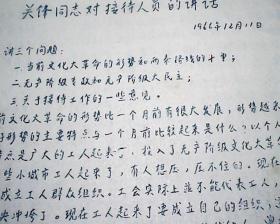 关锋同志对接待人员的讲话
1966年12月11日
讲三个问题：
一.当前文化大革命的形势和两条路线的斗争；
二.无产阶级专政和无产阶级大民主；
三.关于接待工作的一些意见。
文化大革命的形势比一个月前有很大发展，形势越来
形势的主要特点与一个月前比较起来是什么？以个人
点是广大的工人起来了，投入了无产阶级文化大革
些小城市工人起来了，有人想压，压不住的。现在
成立工人群众组织。工会实际上并不能代表工人，
央冲修了。现在工人起来了要成立自己的组织、